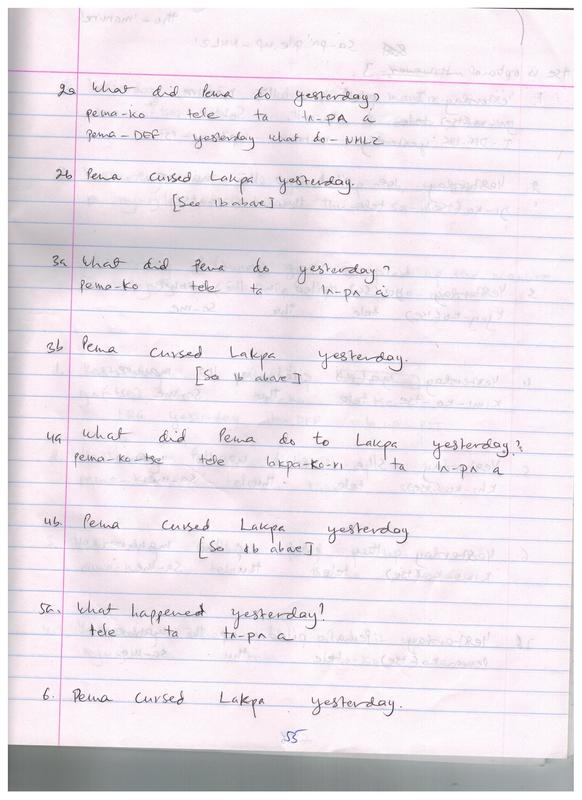 2a What did Pema do yesterday?
pema-ko tele ta lʌ-pʌ a
pema-DEF yesterday what do-NMLZ
2b Pema cursed Lakpa yesterday.
[See 1b above]
3a What did Pema do yesterday?
pema-ko tele ta lʌ-pʌ a
3b Pema cursed Lakpa yesterday.
[See 1b above]
4a What did Pema do to Lakpa yesterday?
pema-ko-tse tele lakpa-ko-ri ta lʌ-pʌ a
4b. Pema cursed Lakpa yesterday
[See 1b above]
5a. What happened yesterday?
tele ta tʌ-pʌ a
6. Pema cursed Lakpa yesterday.
55